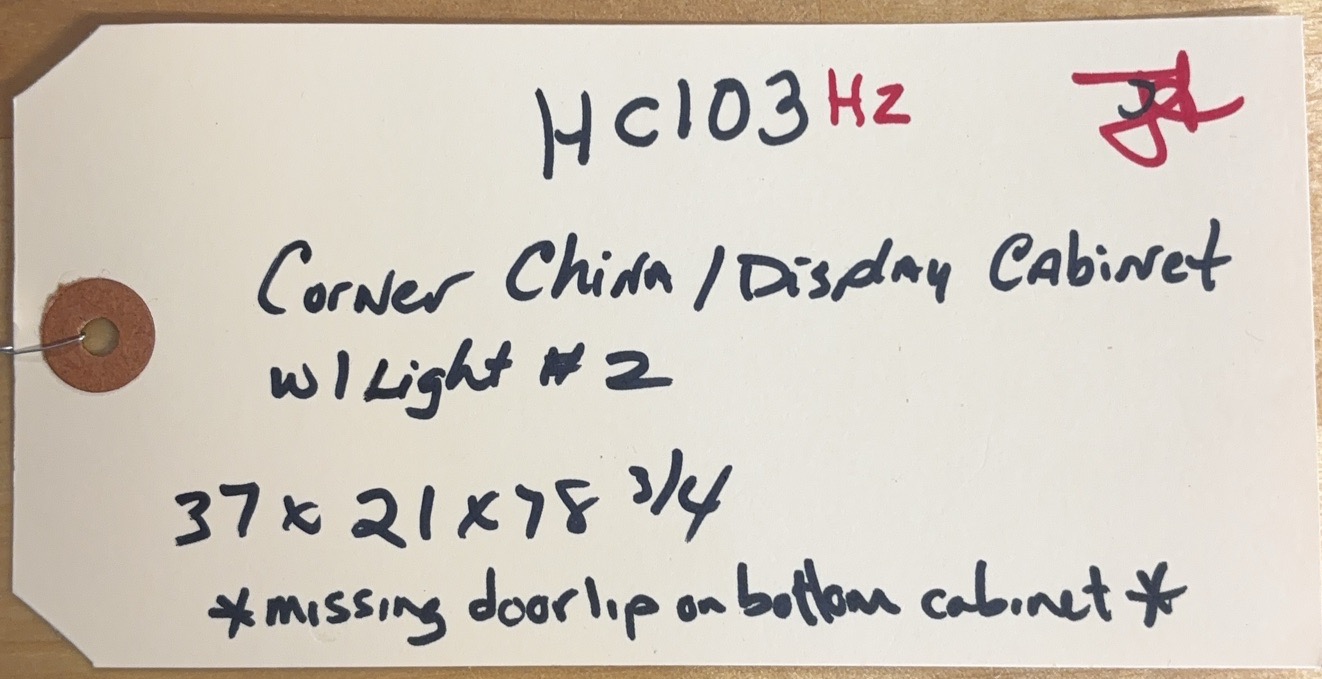 HC103 HZ
Corner China / Display Cabinet
w/Light #2
37 x 21 x 78 3/4
*missing door lip on bottom cabinet*